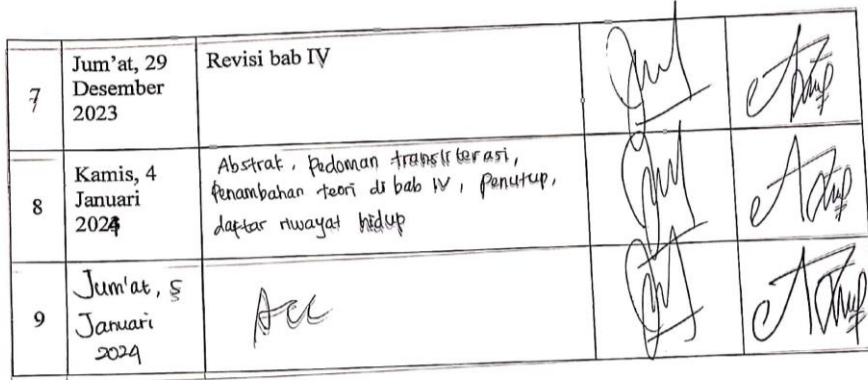 7
Jum'at, 29
Desember
2023
Revisi bab IV
8
Kamis, 4
Januari
2024
Abstrak, Pedoman transliterasi,
Penambahan teori di bab IV, Penutup,
daftar riwayat hidup
9
Jum'at, 5
Januari
2024
Acc